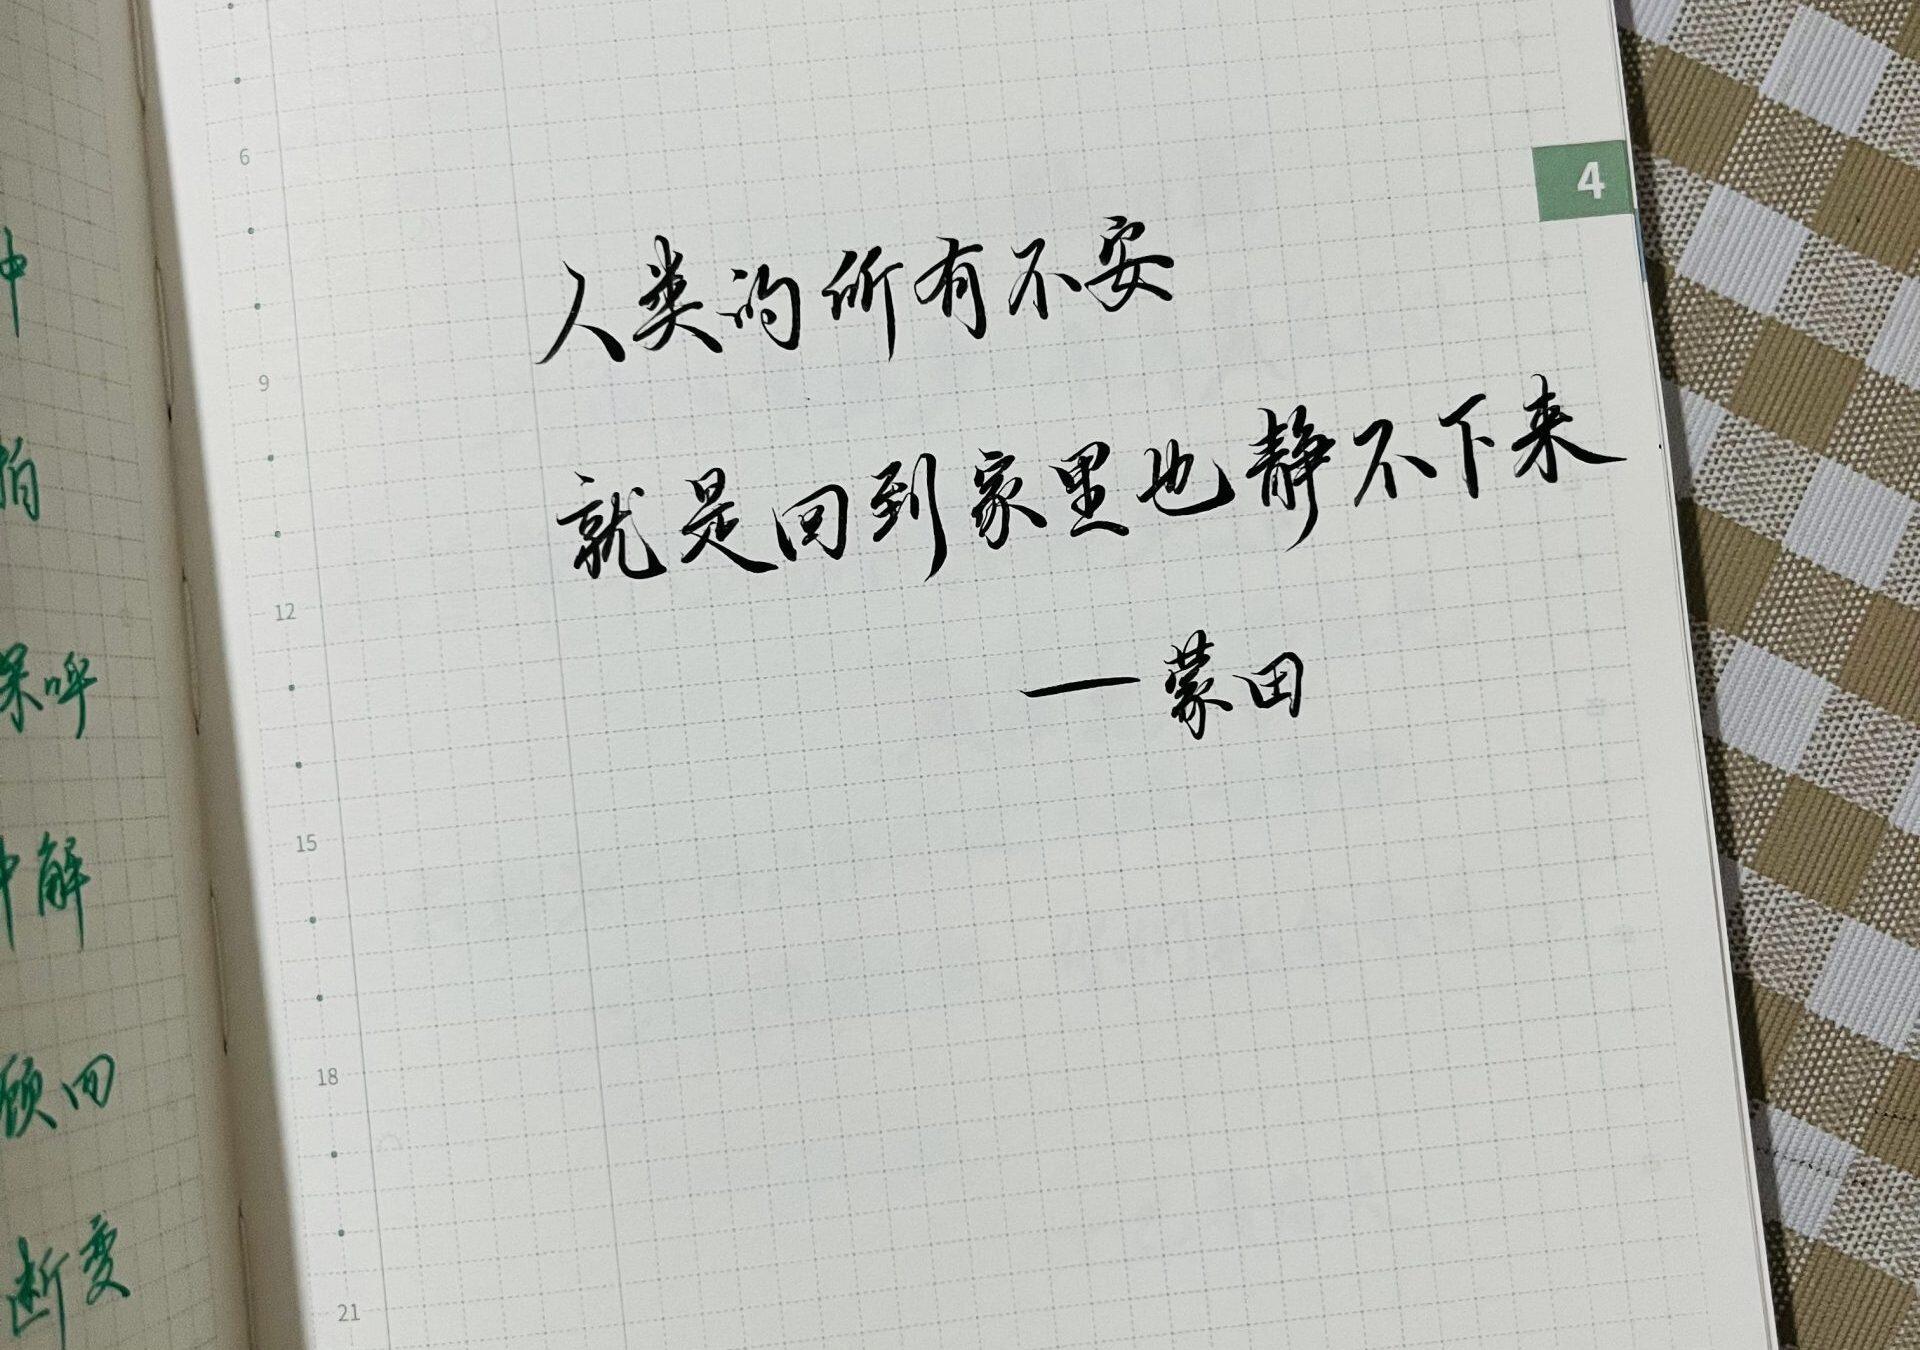 中
拍
呆呼
中解
顾回
断变
6
9
12
15
18
21
4
人类的所有不安
就是回到家里也静不下来
—蒙田